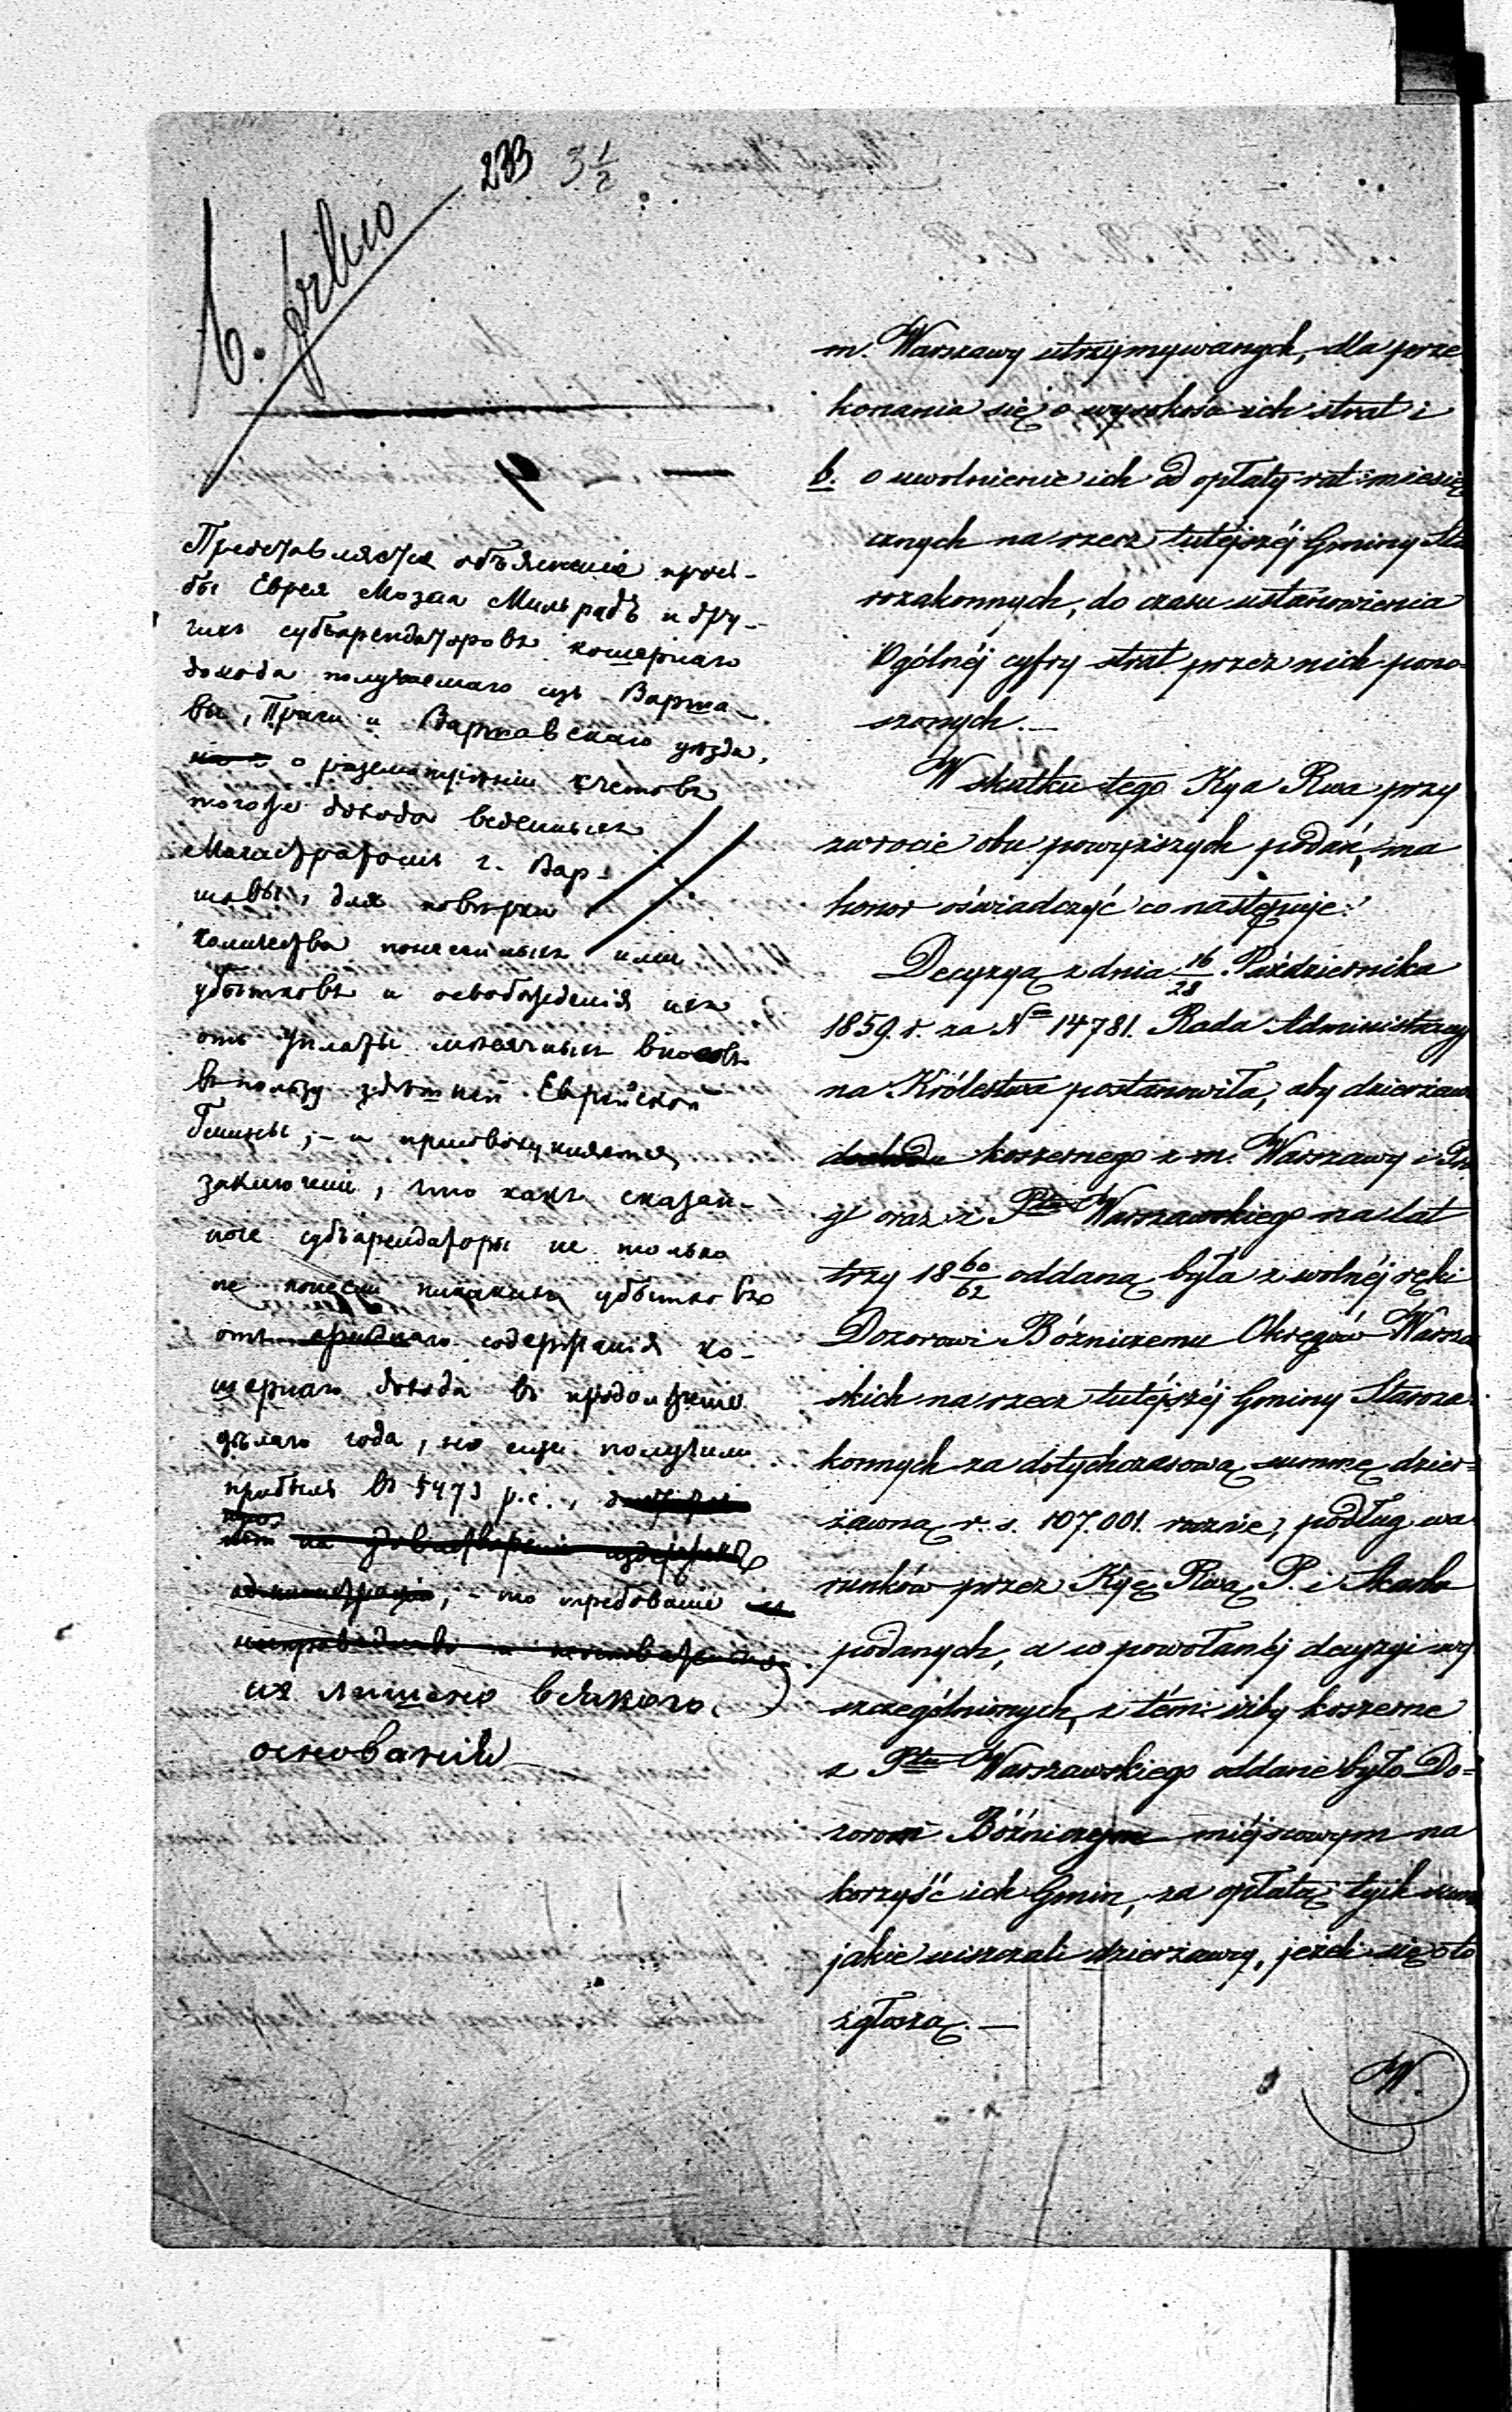 233 3 1/2
Представляется объясненіе прозь-
бы Еврея Мозеса Мильградъ и дру-
гихъ субъарендаторовъ кошернаго
дохода получаемаго изъ Варша-
вы, Праги и Варшавскаго уѣзда,
о разсмотрѣніи счетовъ
тогоже дохода веденныхъ
Магистратомъ г. Вар-
шавы, для повѣрки
количества понесенныхъ ими
убытковъ и освобожденія ихъ
отъ уплаты мѣсячныхъ вносовъ
въ пользу здѣшней Еврейской
Гмины, - и присовокупляется
заключеніе, что какъ сказан-
ные субъарендаторы не только
не понесли никакихъ убытковъ
отъ содержанія ко-
шернаго дохода въ продолженіе
цѣлаго года, но еще получили
прибыль въ 5473 р. с.,
на удовлетвореніе издержекъ
администраціи, - то требованіе
ихъ лишено всякаго
основанія
m. Warszawy utrzymywanych, dla prze
konania się o wysokości ich strat i
b. o uwolnienie ich od opłaty rat miesię
cznych na rzecz tutejszéj Gminy Sta
rozakonnych, do czasu ustanowienia
Ogólnéj cyfry strat przez nich pono-
szonych. —
W skutku tego Kya Rwa przy
zwrocie obu powyższych podań, ma
honor oświadczyć co następuje:
Decyzyą z dnia 16/28 Października
1859. r. za No 14781. Rada Administracyj
na Królestwa postanowiła, aby dzierżawa
dochodu koszernego z m. Warszawy i Pra
gi oraz z Ptu Warszawskiego na lat
trzy 18 60/62 oddaną była z wolnéj ręki
Dozorowi Bóżniczemu Okręgów Warsza
skich na rzecz tutéjszéj Gminy Staroza-
konnych za dotychczasową summę dzier=
żawną r. s. 107.001. rocznie, podług wa
runków przez Kyę Rwą P. i Skarbu
podanych, a w powołanéj decyzyi wy
szczególnionych, z tém: iżby koszerne
z Ptu Warszawskiego oddane było Do=
zorom Bóżniczym miéjscowym na
korzyść ich Gmin, za opłatą tych summ
jakie uiszczali dzierżawcy, jeżeli się o to
zgłoszą. —
W.